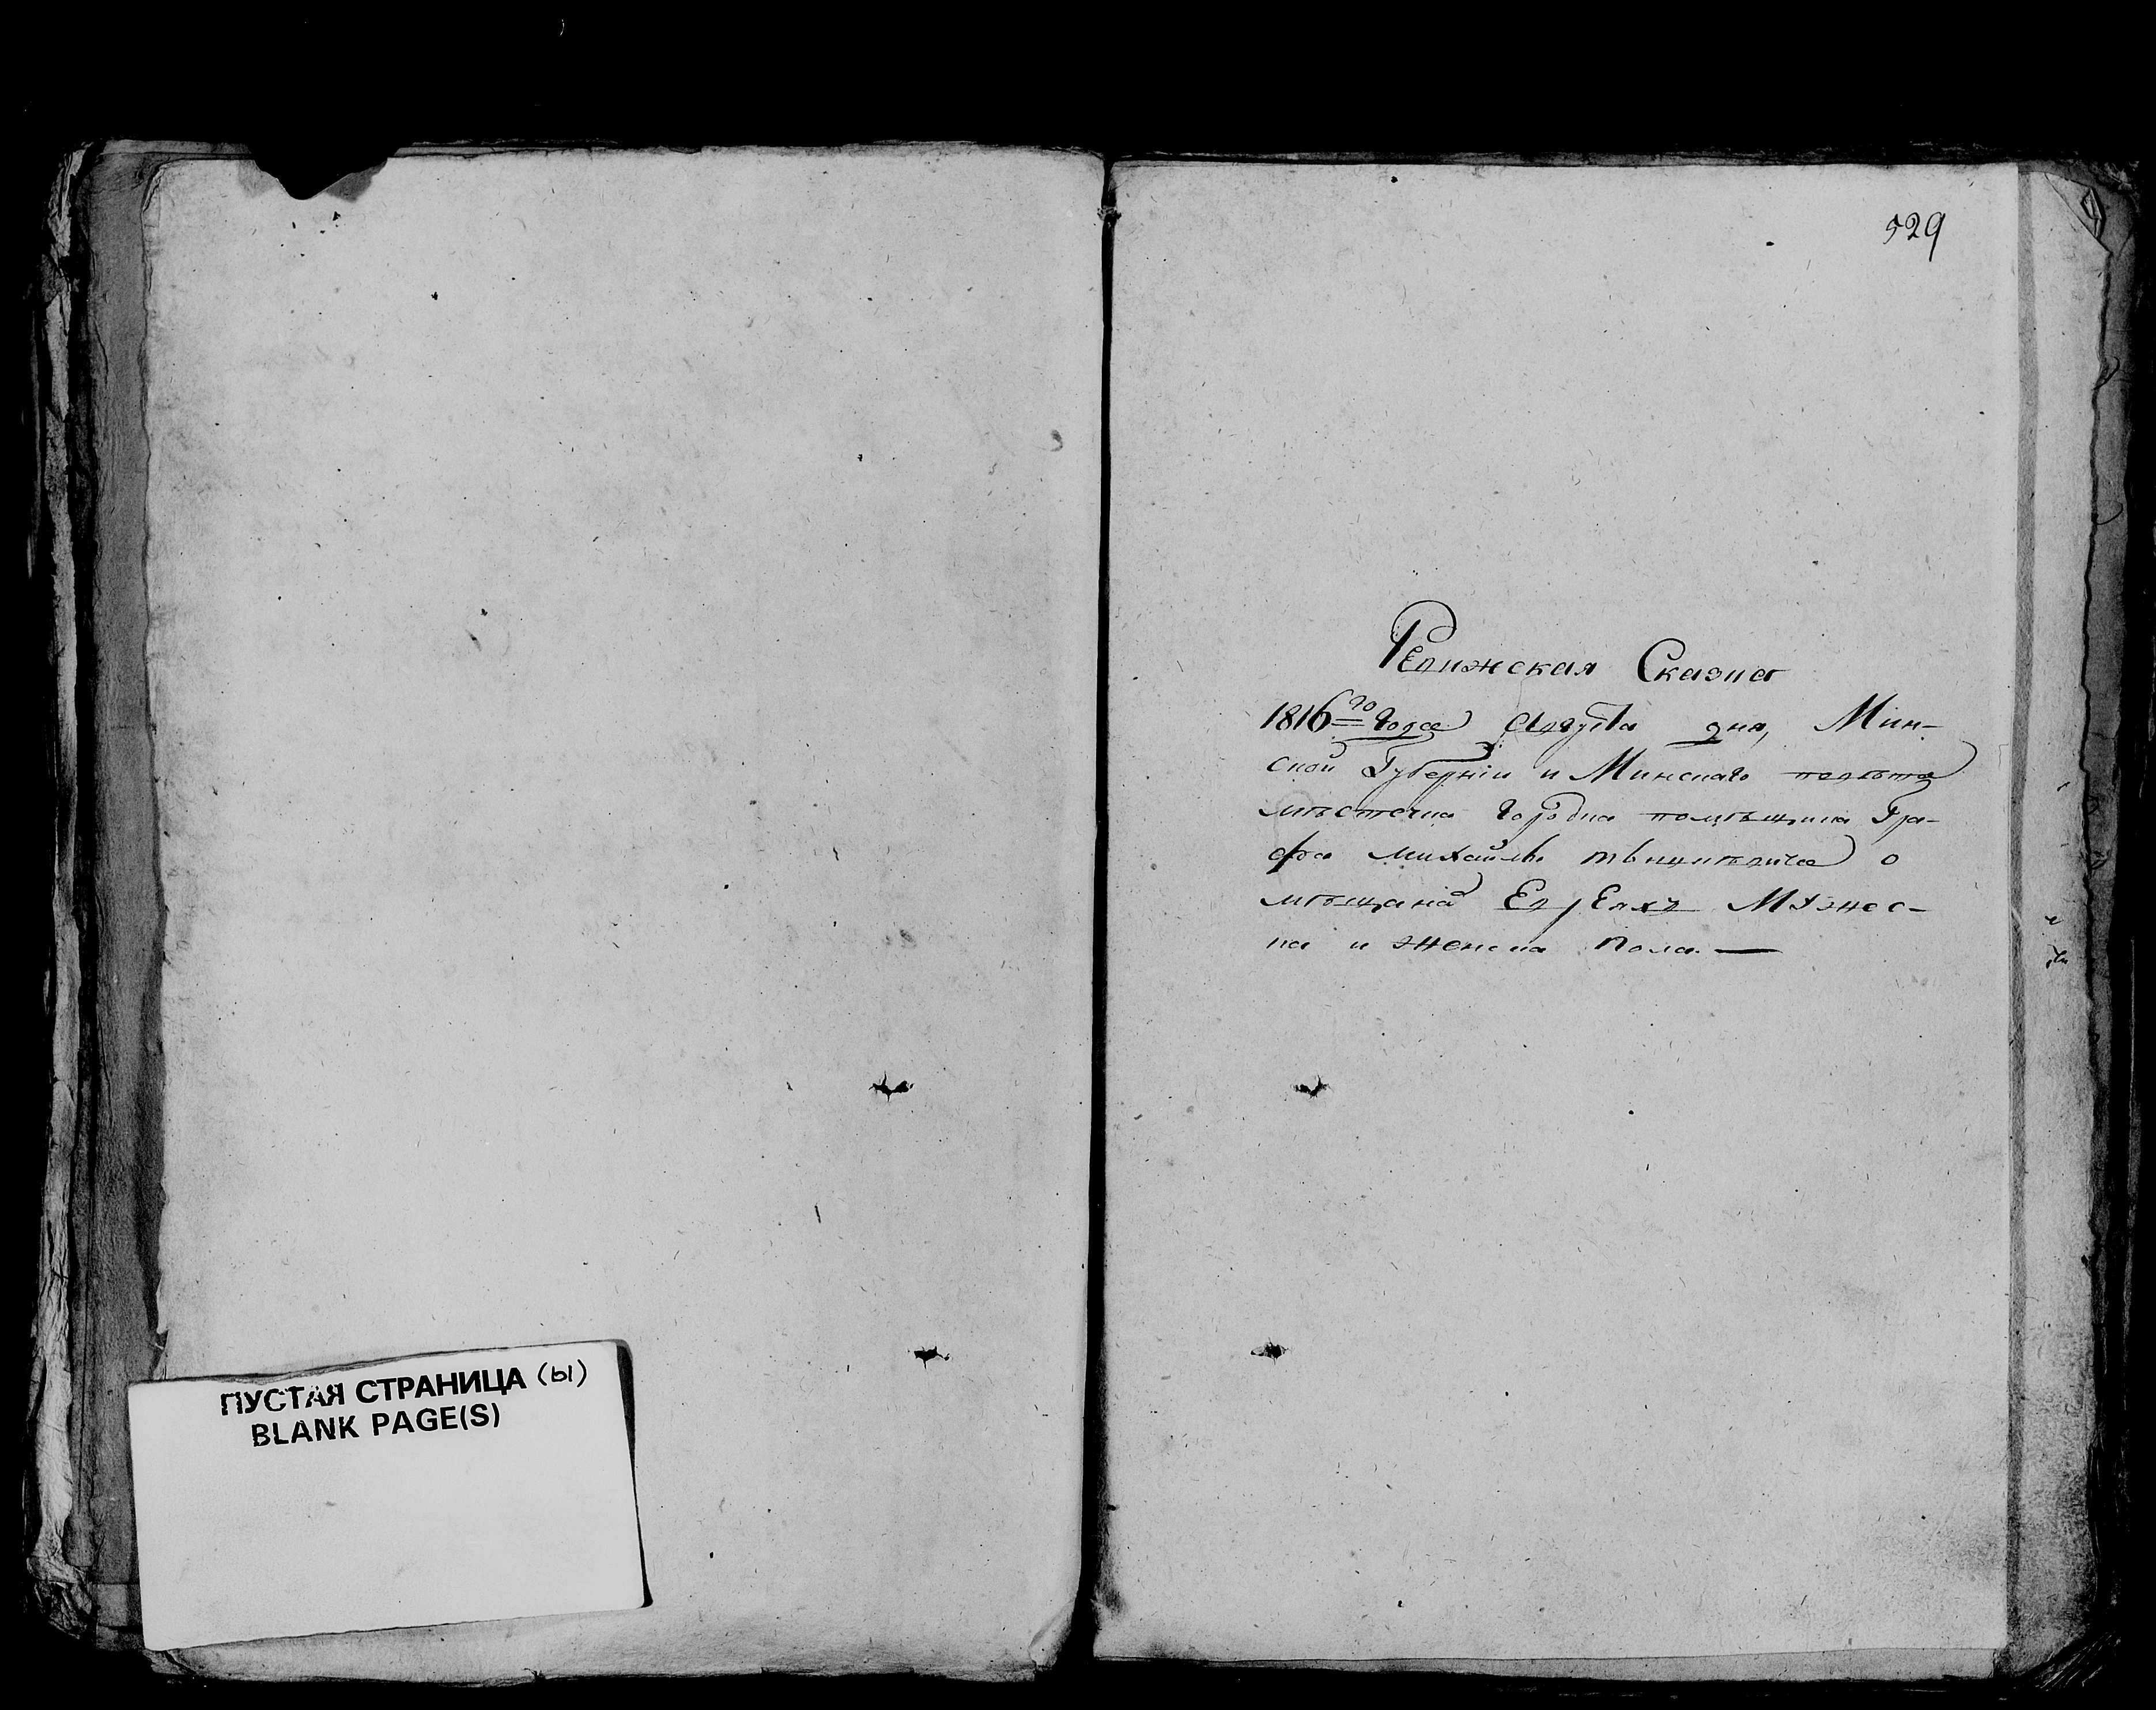 529
Ревижская Сказка
1816го года Августа дня, Мин-
ской Губерніи и Минскаго повѣта
мѣстечка Городка помѣщика Гра-
фа Михаила тышкѣвича о
мѣщана Евреяхъ Мужес-
ка и женска пола. —
ПУСТАЯ СТРАНИЦА (Ы)
BLANK PAGE(S)